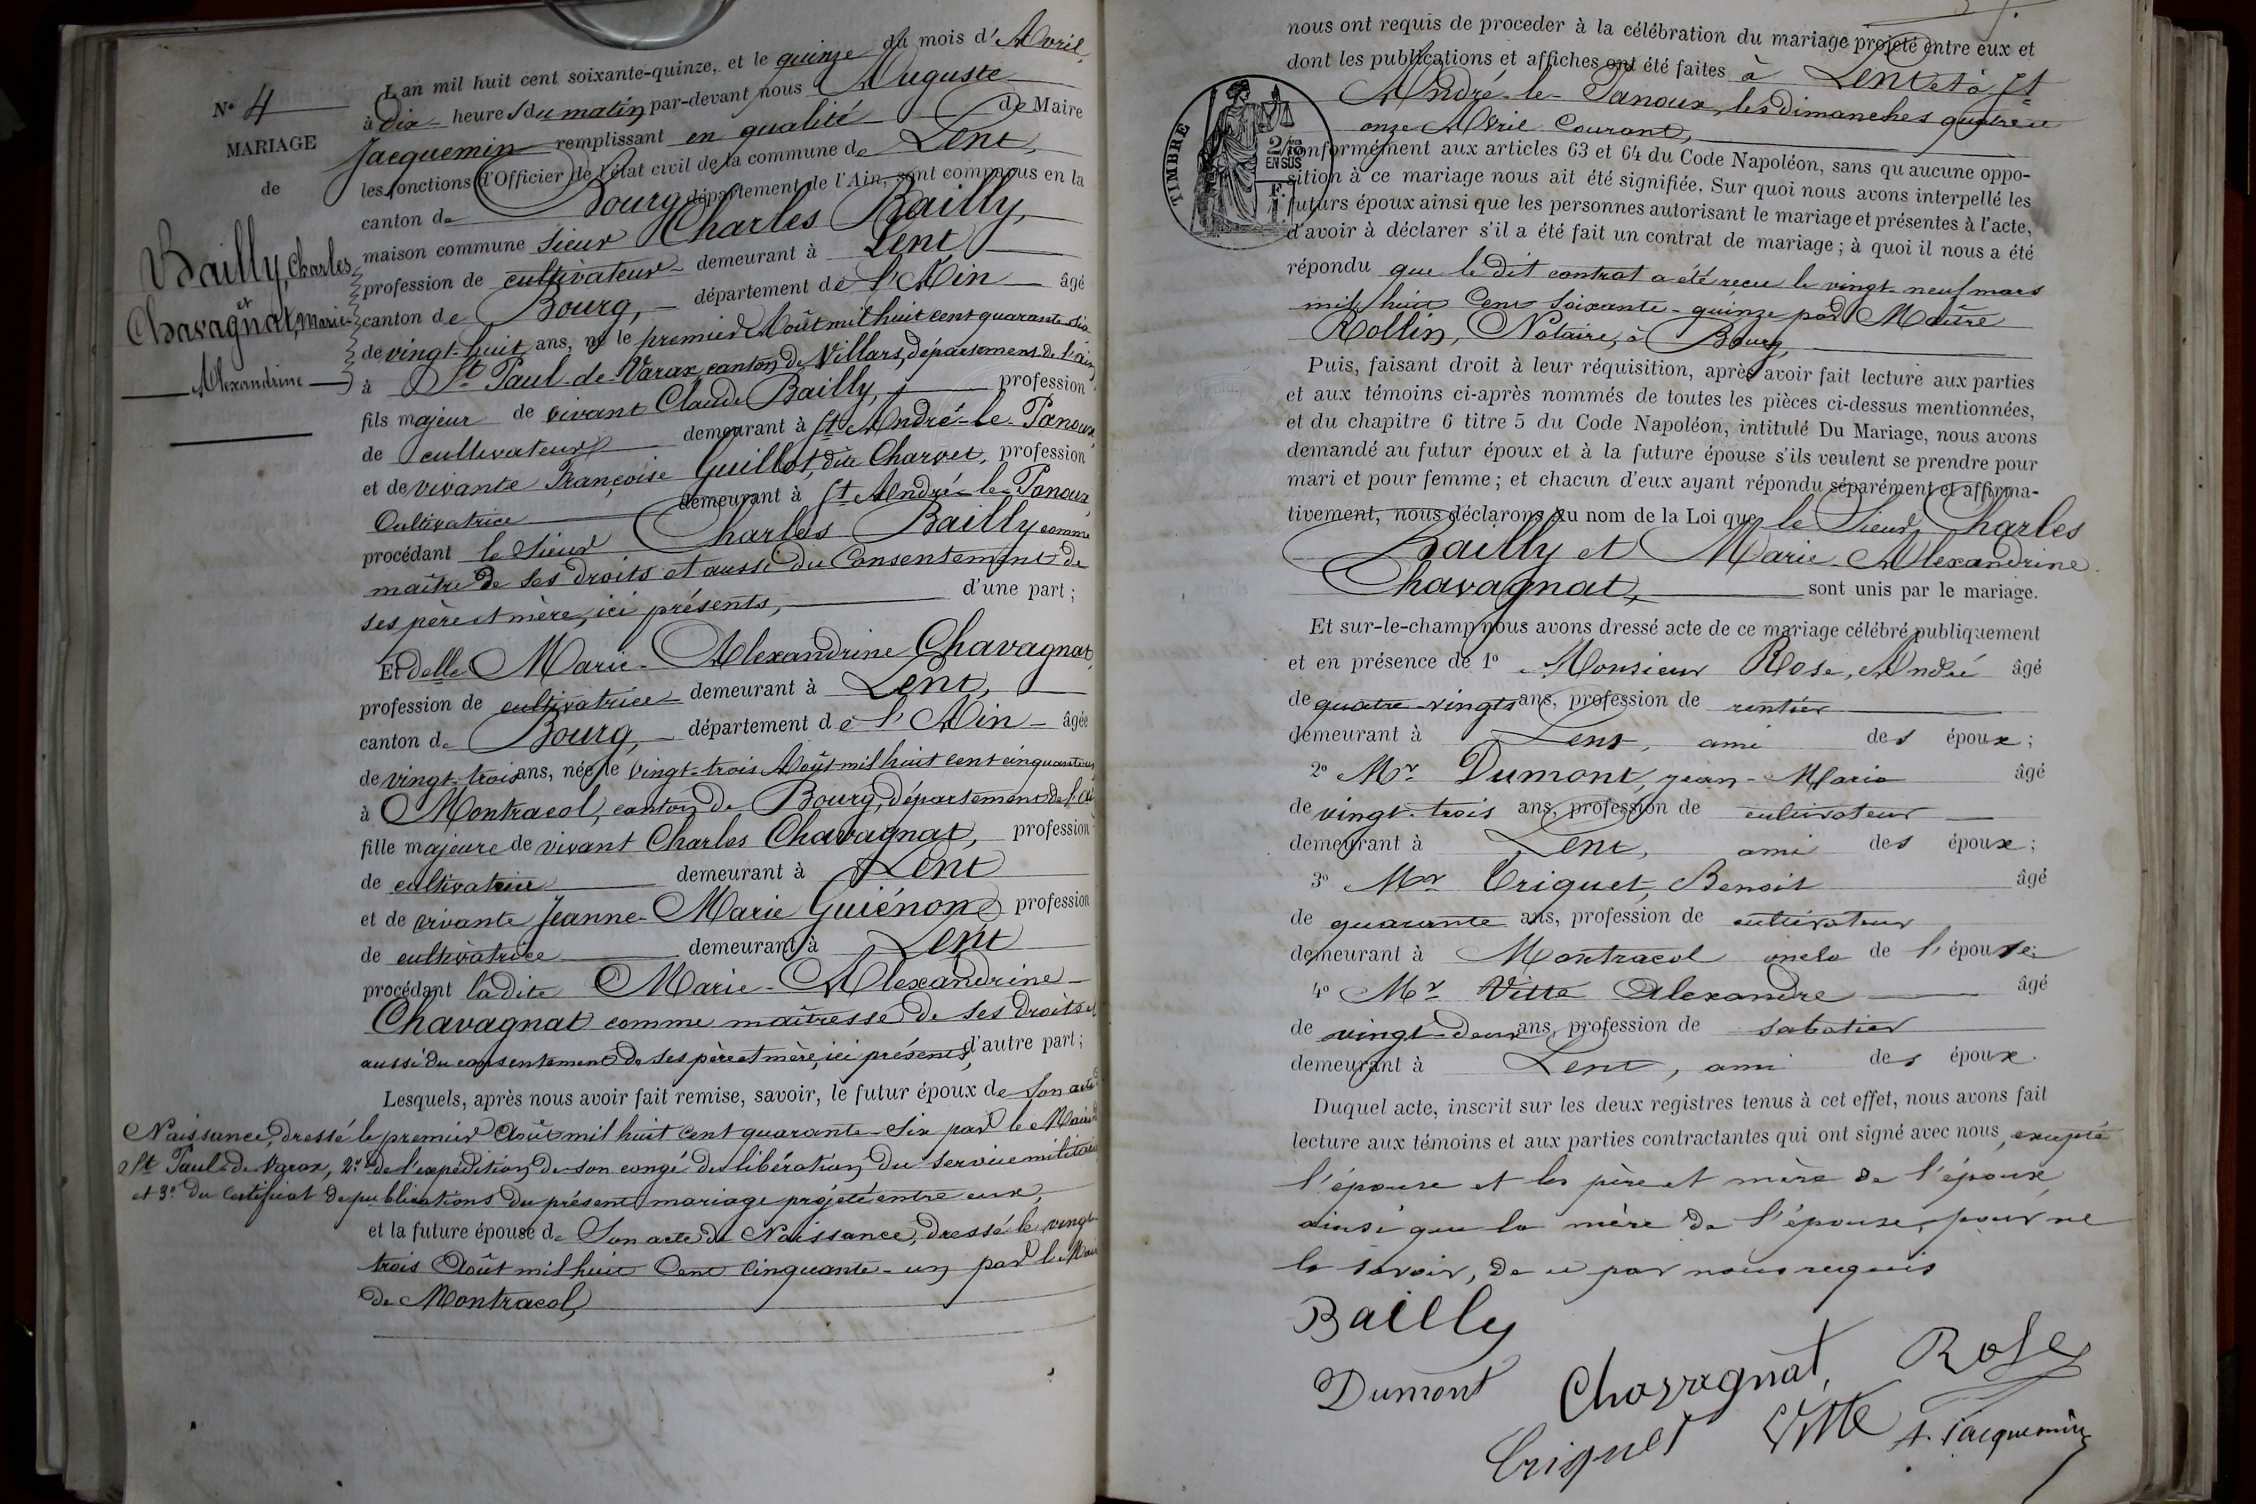 N° 4
MARIAGE
de
Bailly, Charles
et
Chavagnat, Marie-
Alexandrine
L'an mil huit cent soixante-quinze, et le quinze du mois d'Avril,
à dix heures du matin par-devant nous Auguste
Jacquemin remplissant en qualité de Maire
les fonctions d'Officier de l'état civil de la commune de Lent,
canton de Bourg département de l'Ain, sont comparus en la
maison commune sieur Charles Bailly,
profession de cultivateur demeurant à Lent
canton de Bourg, département de l'Ain âgé
de vingt-huit ans, né le premier Août mil huit cent quarante-six
à St Paul-de-Varax, canton de Villars, département de l'ain,
fils majeur de vivant Claude Bailly, profession
de cultivateur demeurant à St André-le-Panoux,
et de vivante Françoise Guillot, dite Charvet, profession
Cultivatrice demeurant à St André-le-Panoux,
procédant le Sieur Charles Bailly comme
maître de ses droits et aussi du Consentement de
ses père et mère, ici présents, d'une part ;
Et delle Marie-Alexandrine Chavagnat,
profession de cultivatrice demeurant à Lent,
canton de Bourg, département de l'Ain âgée
de vingt-trois ans, née le vingt-trois Août mil huit cent cinquante un
à Montracol, canton de Bourg, département de l'Ain
fille majeure de vivant Charles Chavagnat, profession
de cultivatrice demeurant à Lent
et de vivante Jeanne-Marie Guiénon profession
de cultivatrice demeurant à Lent
procédant ladite Marie-Alexandrine
Chavagnat comme maîtresse de ses droits et
aussi du consentement de ses père et mère, ici présents, d'autre part ;
Lesquels, après nous avoir fait remise, savoir, le futur époux de son acte de
Naissance, dressé le premier Août mil huit cent quarante-six par le Maire
à St Paul-de-Varax, 2° de l'expédition de son congé de libération du service militaire
et 3° du certificat de publications du présent mariage projeté entre eux,
et la future épouse de Son acte de Naissance, dressé le vingt-
trois Août mil huit Cent Cinquante-un par le Maire
de Montracol,
nous ont requis de proceder à la célébration du mariage projeté entre eux et
dont les publications et affiches ont été faites à Lent et à St
André-le-Panoux, les dimanches quatre et
onze Avril Courant,
TIMBRE
2/10 EN SUS
conformément aux articles 63 et 64 du Code Napoléon, sans qu'aucune oppo-
sition à ce mariage nous ait été signifiée. Sur quoi nous avons interpellé les
futurs époux ainsi que les personnes autorisant le mariage et présentes à l'acte,
d'avoir à déclarer s'il a été fait un contrat de mariage ; à quoi il nous a été
répondu que le dit contrat a été reçu le vingt-neuf mars
mil huit Cent Soixante-quinze par Maître
Rollin, Notaire, à Bourg,
Puis, faisant droit à leur réquisition, après avoir fait lecture aux parties
et aux témoins ci-après nommés de toutes les pièces ci-dessus mentionnées,
et du chapitre 6 titre 5 du Code Napoléon, intitulé Du Mariage, nous avons
demandé au futur époux et à la future épouse s'ils veulent se prendre pour
mari et pour femme ; et chacun d'eux ayant répondu séparément et affirma-
tivement, nous déclarons au nom de la Loi que le Sieur Charles
Bailly et Marie-Alexandrine
Chavagnat, sont unis par le mariage.
Et sur-le-champ nous avons dressé acte de ce mariage célébré publiquement
et en présence de 1° Monsieur Rose, André âgé
de quatre-vingts ans, profession de rentier
demeurant à Lent, ami des époux ;
2° Mr Dumont, jean-Marie âgé
de vingt-trois ans, profession de cultivateur
demeurant à Lent, ami des époux ;
3° Mr Criquet, Benoit âgé
de quarante ans, profession de cultivateur
demeurant à Montracol oncle de l'épouse ;
4° Mr Vitte Alexandre âgé
de vingt-deux ans, profession de sabotier
demeurant à Lent, ami des époux.
Duquel acte, inscrit sur les deux registres tenus à cet effet, nous avons fait
lecture aux témoins et aux parties contractantes qui ont signé avec nous, excepté
l'épouse et les père et mère de l'époux
ainsi que la mère de l'épouse, pour ne
le savoir, de ce par nous requis
Bailly
Dumont Chavagnat, Rose
Criquet Vitte A. Jacquemin